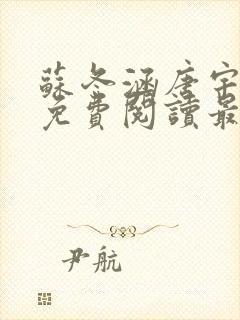 蘇冬涵唐宇
免費閱讀最
尹航